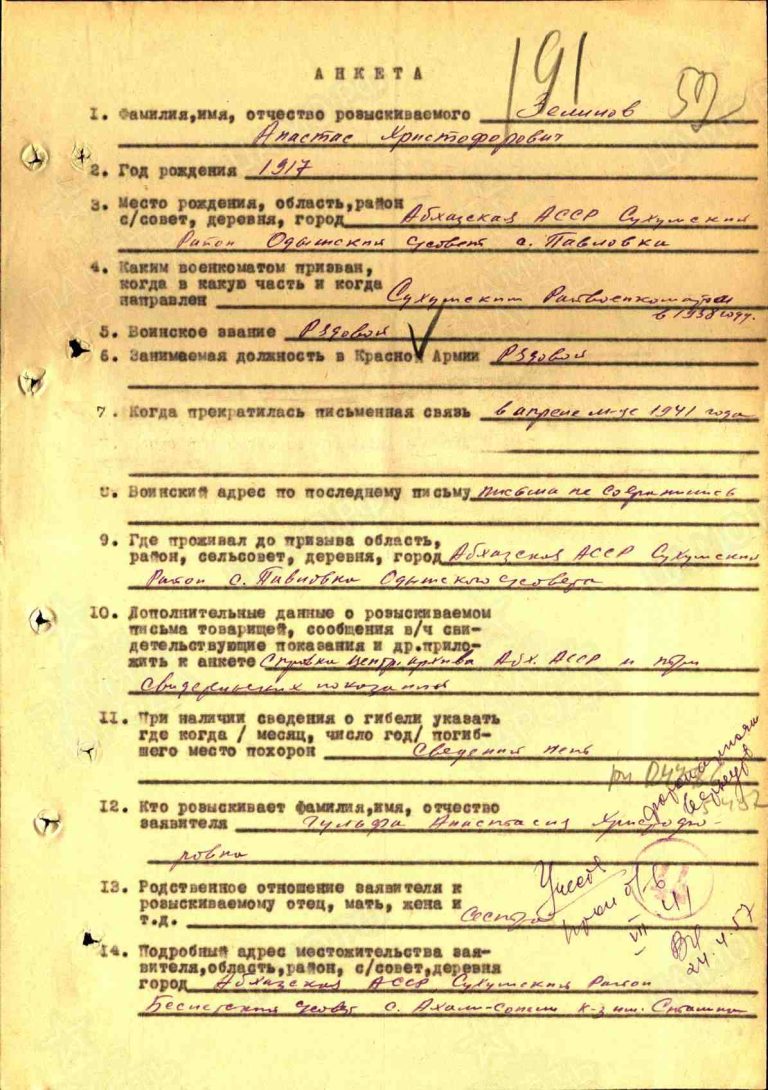 191
52
АНКЕТА
1. Фамилия,имя, отчество розыскиваемого Зелилов
Анастас Христофорович
2. Год рождения 1917
3. Место рождения, область,район
с/совет, деревня, город Абхазская АССР Сухумский
Район Одышский с/совет с. Павловка
4. Каким военкоматом призван,
когда в какую часть и когда
направлен Сухумским Райвоенкоматом
в 1938 году.
5. Воинское звание Рядовой
6. Занимаемая должность в Красной Армии Рядовой
7. Когда прекратилась письменная связь в апреле м-це 1941 года
8. Воинский адрес по последнему письму письма не сохранились
9. Где проживал до призыва область,
район, сельсовет, деревня, город Абхазская АССР Сухумский
Район с. Павловка Одышского с/совета
10. Дополнительные данные о розыскиваемом
письма товарищей, сообщения в/ч сви-
детельствующие показания и др.прило-
жить к анкете Справка Центр. архива Абх. АССР и три
свидетельских показания
11. При наличии сведения о гибели указать
где когда / месяц, число год/ погиб-
шего место похорон Сведений нет
12. Кто розыскивает фамилия,имя, отчество
заявителя Гульфа Анастасия Христофо-
ровна
13. Родственное отношение заявителя к
розыскиваемому отец, мать, жена и
т.д. Сестра
VII 41
24.4.57
14. Подробный адрес местожительства зая-
вителя,область,район, с/совет,деревня
город Абхазская АССР Сухумский Район
с/совет с. Ахали-Сопели к-з им. Сталина